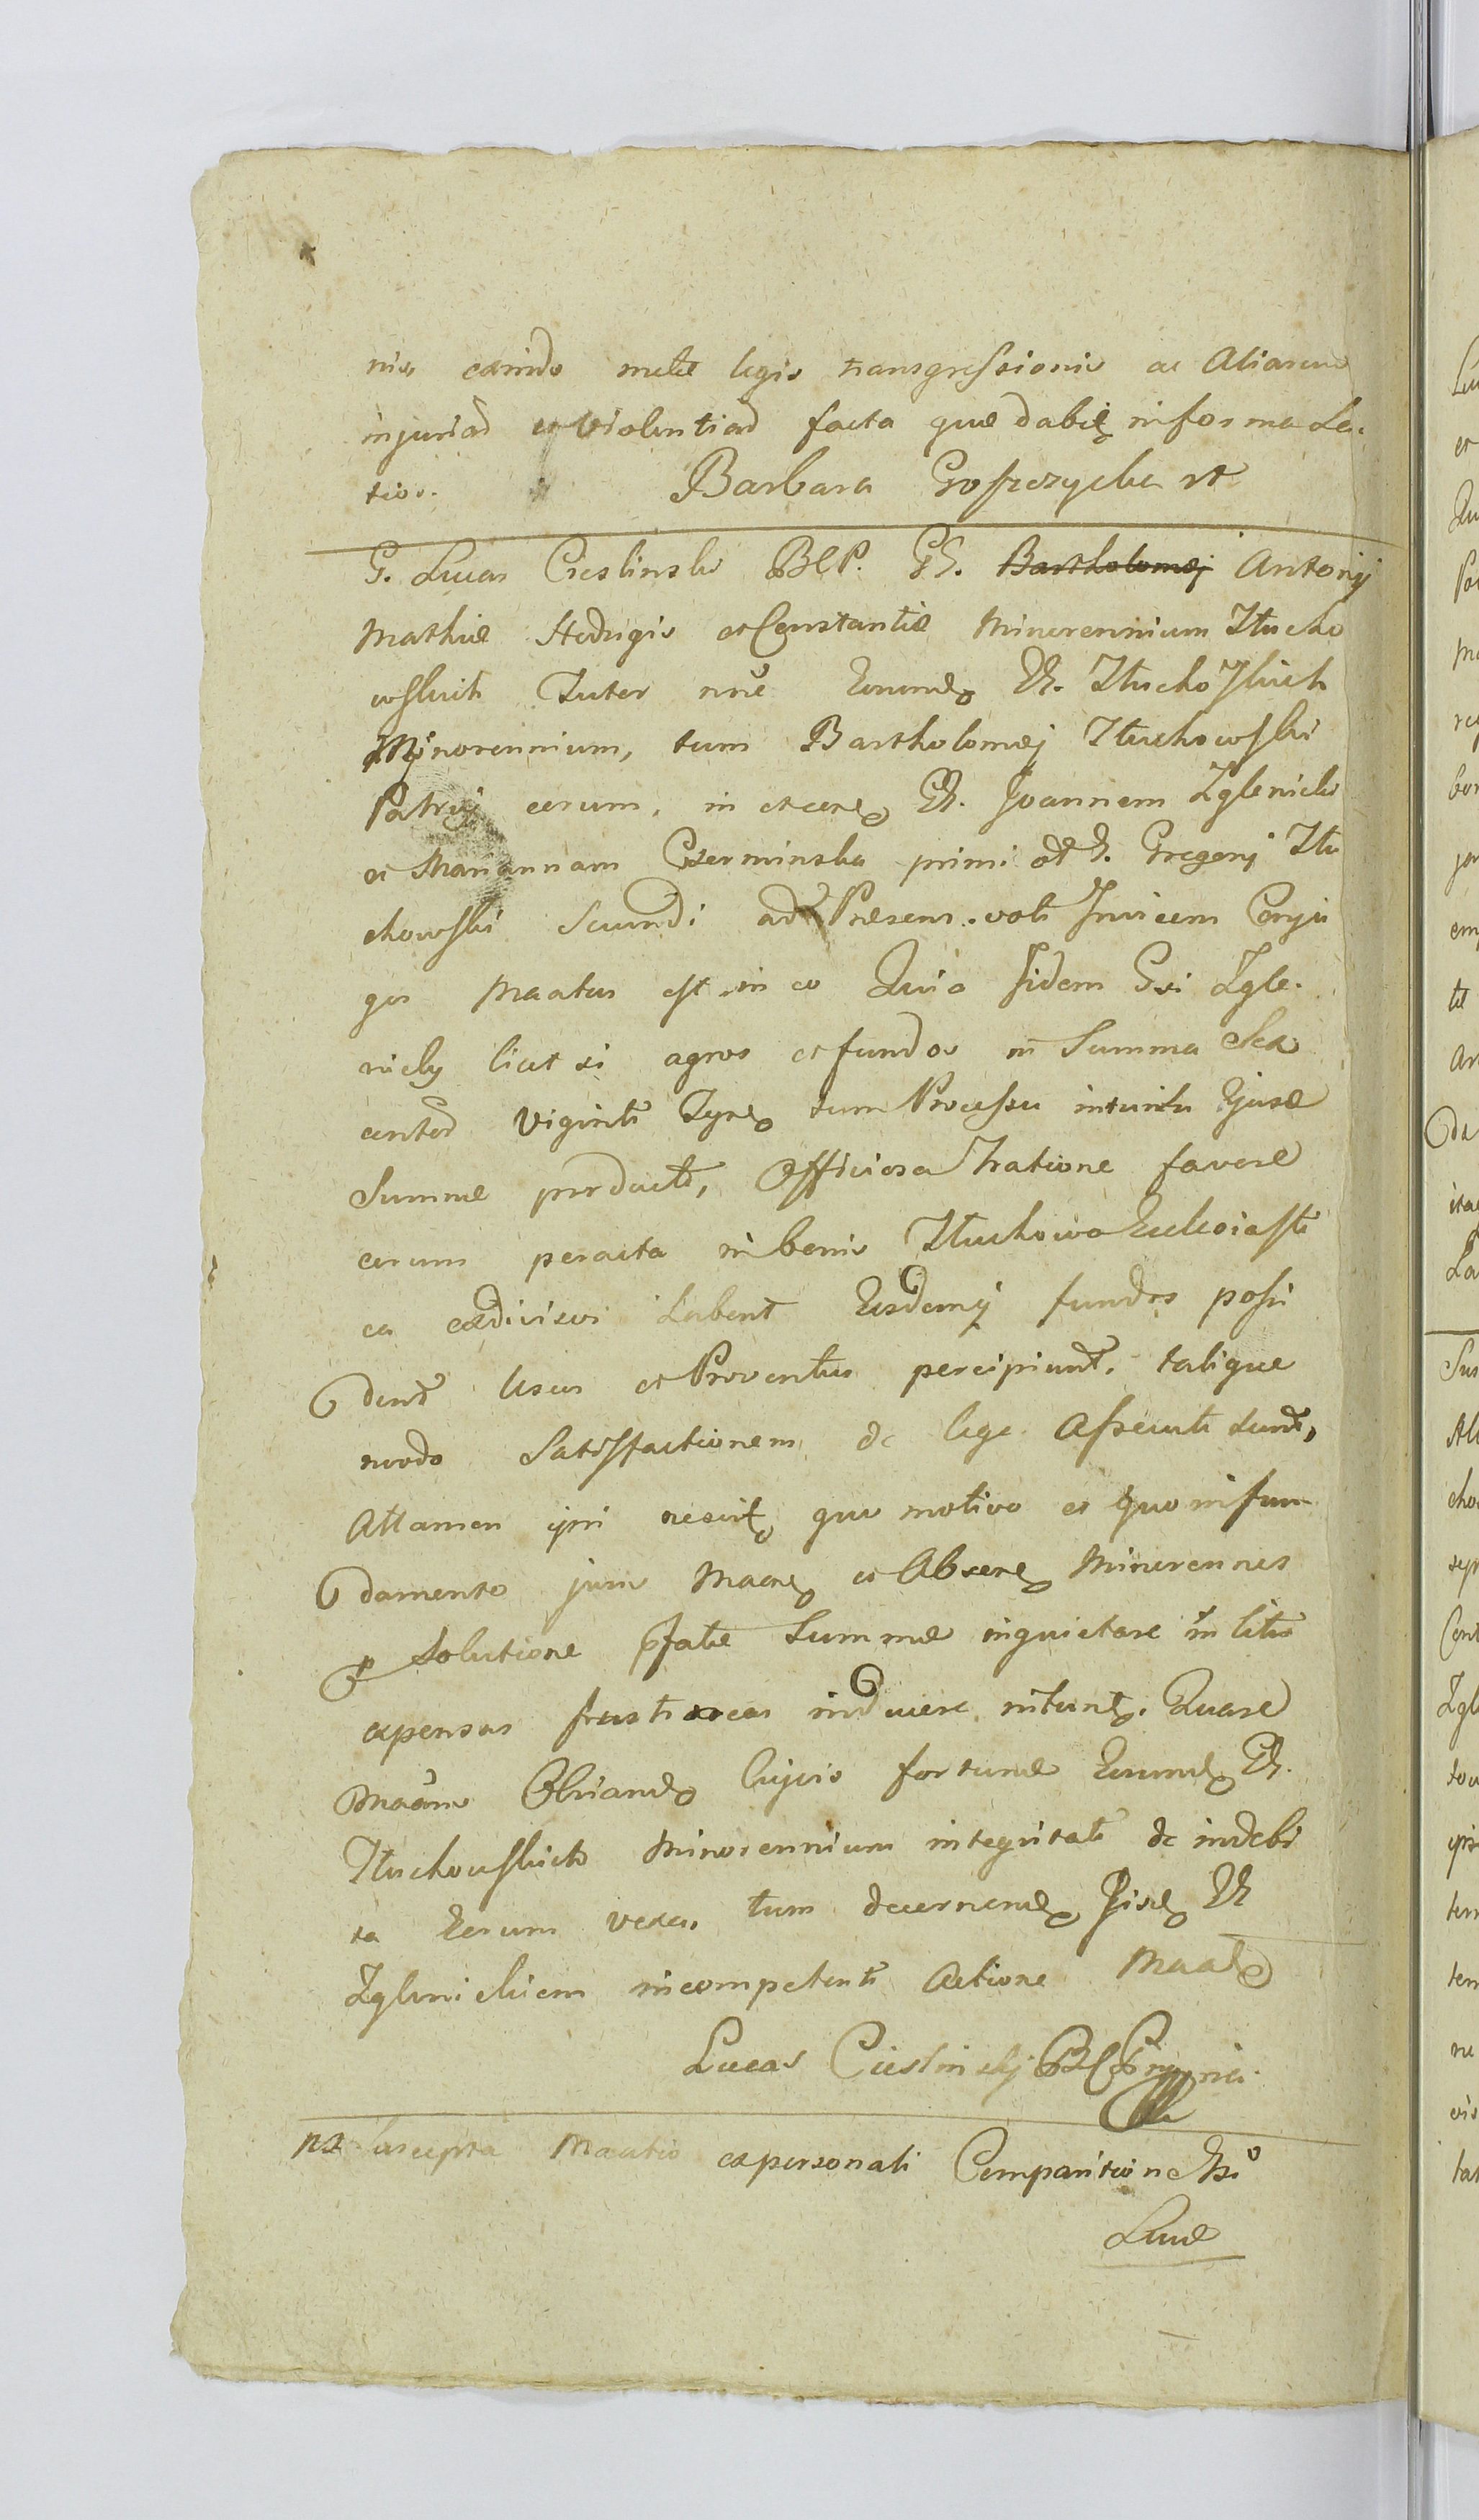 nis exinde multæ legis transgressionis ac Aliarum
injuriad et Violentiad facta quæ dabit in forma La-
tior.
Barbara Gosrczycka st
G. Lucas Cieslinski BCP. GG. Bartholomej Antonij
Mathiæ Hedvigis et Constantiæ Minorennium Tłucho
wskich Tutor nne Eorund GG. Tłuchowskich
Minorennium, tum Bartholomej Tłuchowski
Patruj eorum, in et cere GG. Joannem Zglenicki
et Mariannam Czerminska primi et G. Gregorij Tłu
chowski Secundi ad Præsens voti Invicem Conju
ges Maatus est in eo Quia Iidem Gsi Zgle-
nicky licet si agros et fundos in Summa Sex
cento Viginti Tynf tum Processu intuitu Ejusd
Summæ producti, Officiosa Tratione favore
eorum peracta in bonis Tłuchowo Ecclesiasti
ca exdivisos habent Eisdemq fundos possi
dent Usus et Proventus percipiunt, talique
modo Satisfactionem de lege Assecuti sunt,
Attamen ipsi nescit quo motivo et quo infun
damento jure Maare et Absere Minorennes
p solutione pfatæ Summæ inquietare in litis
expensas frustraneas inducere nitunt. Quare
Maam Obviand hujus fortunæ Eorund GG.
Tłuchowskich Minorennium integritati de indebi
ta Eorum vexa, tum decernend Iisd GG
Zglenickiem incompetenti Actione Maat
Lucas Cieslinskj BCP mpria
nx Suscepta Maatio ex personali Comparitione Gsi
Lucæ